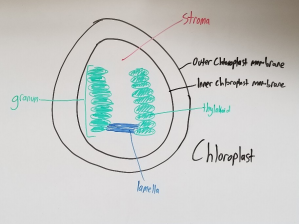 Stroma
Outer Chloroplast membrane
Inner Chloroplast membrane
granum
thylakoid
Chloroplast
lamella